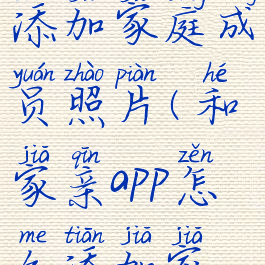 添加家庭成
yuán zhào piàn hé
员照片(和
jiā qīn zěn
家亲app怎
me tiān jiā jiā
么添加家